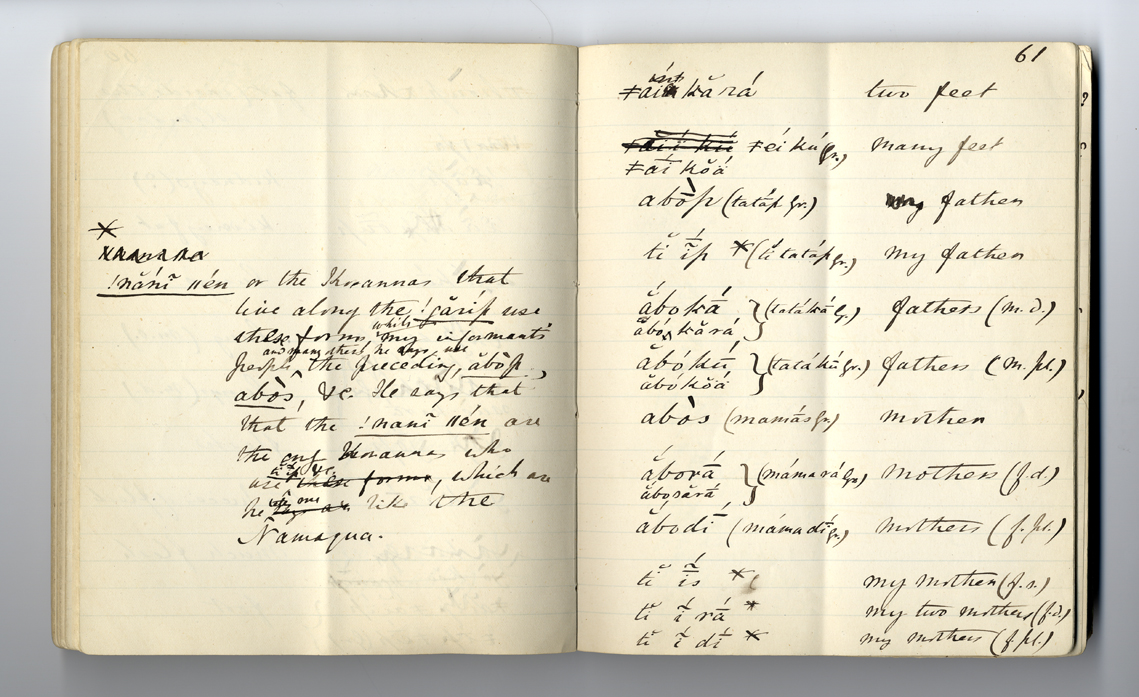 !nănĩ ǁén or the Korannas that
live along the !gărip use
these forms, whilst my informant's
people and many others he says use the preceding, ăbop,
abòs, &c. He says that
that the !nani ǁén are
the only Korannas who
use ti ĩp &c. these forms, which are
he tells me says are like the
Namaqua.
61
ǂai kă rá two feet
ǂéi kú (Gr.) many feet
ǂai kŏá
abòp (tatáp Gr.) my father
ti ĩp * (ti tatáp Gr.) my father
ăboká (tatáká Gr.) fathers (m. d.)
ăbó kărá
ăbókú (tatákú Gr.) fathers (m. pl.)
ăbókŏá
abòs (mamás Gr.) mother
ăborá (mámará Gr.) mothers (f. d.)
ăbosárá
ăbodí (mámadí Gr.) mothers (f. pl.)
tĭ ĩs * my mother (f. s.)
tĭ ĩ rá * my two mothers (f. d.)
tĭ ĩ dí * my mothers (f. pl.)